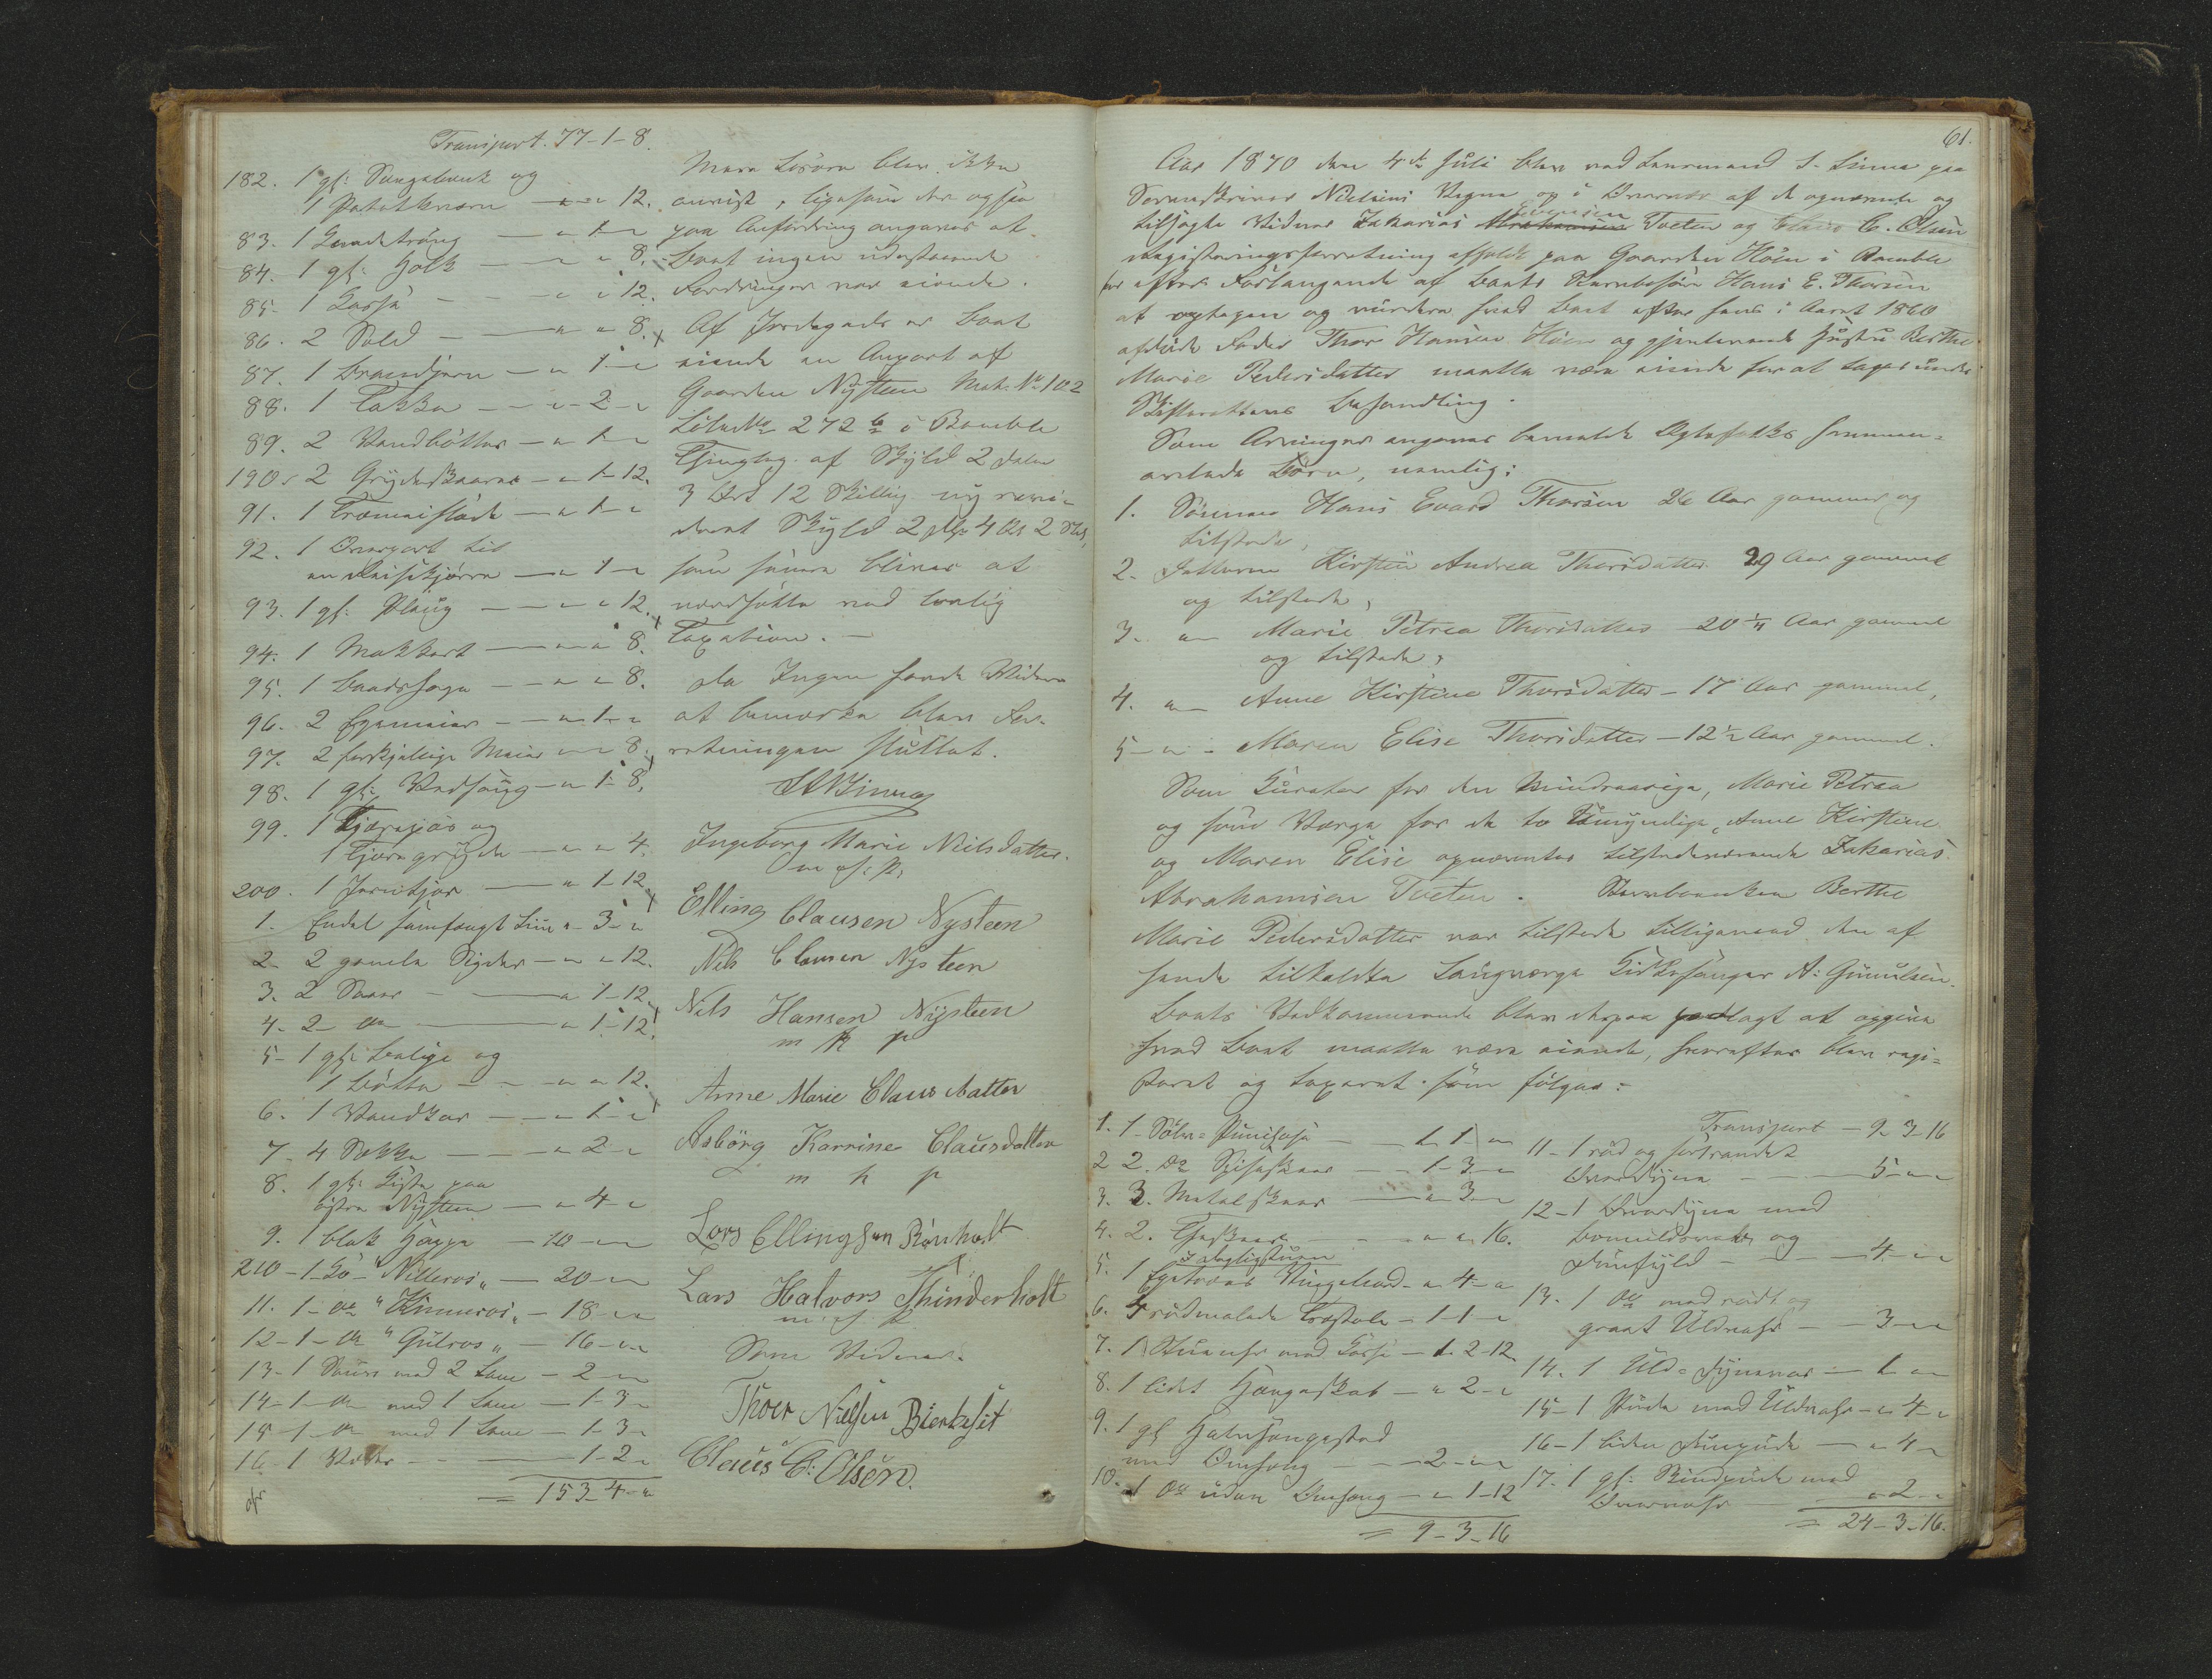 Transport. 77-1-8.
182. 1 gl: Sengebænk og
1 Potetkværn — " " 12.
83. 1 Gundetroug — " 1 "
84. 1 gl: Holk — " " 8.
85. 1 — " " 12.
86. 2 Sold — " " 8.
87. 1 Brændjern — " 1 "
88. 1 Takke — " 2 "
89. 2 Vandbøtter — " 1 "
190. 2 Grydeskaarer — " 1-12.
91. 1 — " 1 "
92. 1 Overpart til
en Reisekjærre — " 1 "
93. 1 gl: Ploug — " " 12.
94. 1 Mokkort — " " 8.
95. 1 Baandsaga — " " 8.
96. 2 — " 1 "
97. 2 forskjellige Meier " " 8.
98. 1 gl: Vedsaug — " 1-8.
99. 1 og
1 Tjæregryde — " " 4.
200. 1 — " 1-12.
1. Endel Liin " 3 "
2. 2 gamle — " " 12.
3. 2 — " 1-12.
4. 2 do — " 1-12.
5. 1 gl: Balje og
1 Bøtte — " " 12.
6. 1 Vandkar — " 1 "
7. 4 Sække — " 2 "
8. 1 gl: Kiste paa
østre Nysteen — " 4 "
9. 1 blak Hoppe — 10 " "
210 - 1 Ko "Nilleros" — 20 " "
11. 1 do "Kinneros" — 18 " "
12 - 1 do "Gulros" — 16 " "
13 - 1 Souer med 2 Lam — 2 " "
14 - 1 do med 1 Lam — 1-3 "
15 - 1 do med 1 Lam — 1-3 "
16 - 1 Væder — 1-2 "
= 153-4 "
Mere Løsøre blev ikke
anvist, ligesom der ogsaa
paa Anfordring angaves at
Boet ingen udestaaende
Fordringer var eiende.
Af Jordegods er Boet
eiende en Anpart af
Gaarden Nysteen Mat. No 102
Løbe No 272 b i Bamble
Thinglag af Skyld 2 Daler
3 Ort 12 Skilling ny revi-
deret Skyld 2 Dlr 4 Ort 2 Sk,
som senere bliver at
værdsætte ved lovlig
Taxation. —
Da Ingen havde Videre
at bemærke blev For-
retningen sluttet.
Ingeborg Marie Nielsdatter.
m. f. P.
Elling Clausen Nysteen
Nils Clausen Nysteen
Nils Hansen Nysteen
m P p
Anne Marie Clausdatter
Asbörg Karrine Clausdatter
m p p
Lors Ellingsen Rönholt
Lars Halvors Skinderholt
m. f. P
Som Vidner.
Thoer Nielsen Bierkeset
Claus C: Olsen.
61.
Aar 1870 den 4de Juli blev ved Lensmand S. Linna paa
Sorenskriver Nielsens Vegne og i Overvær af de opnævnte og
tilsagte Vidner Zakarias Abrahamsen Tveten og Claus C. Olsen
Registreringsforretning afholdt paa Gaarden Höen i Bamble
for efter Forlangende af Boets Hans E. Thorsen
at optegne og vurdere hvad Boet efter hans i Aaret 1860
afdøde Fader Thor Hansen Höen og gjenlevende Hustru Berthe
Marie Pedersdatter maatte være eiende for at tages under
Skifterettens Behandling.
Som Arvinger angaves bemeldte Ægtefolks sammen-
avlede Børn, nemlig:
1. Sønnen Hans Evard Thorsen 26 Aar gammel og
tilstede,
2. Datteren Kirstin Andrea Thorsdatter 29 Aar gammel
og tilstede,
3. " Marie Petrea Thorsdatter 20 1/4 Aar gammel
og tilstede,
4. " Anne Kirstine Thorsdatter - 17 Aar gammel,
5 - " - Maren Elise Thorsdatter - 12 1/2 Aar gammel.
Som Kurator for den mindreaarige, Marie Petrea
og som Værge for de to Umyndige, Anne Kirstine
og Maren Elise opnævntes tilstedeværende Zakarias
Abrahamsen Tveten. Stervboenken Berthe
Marie Pedersdatter var tilstede tilligemed den af
hende tilkaldte Laugværge Kirkesanger A: Gunulsen.
Boets Vedkommende blev derpaa paalagt at opgive
hvad Boet maatte være eiende, hvorefter blev regi-
streret og taxeret som følger:
1. 1 Sølv= — 1 " "
2 2. do Spiseskeer — " 1-3 "
3. 3. Metalskeer — " 3 "
4. 2. Theskeer — " " 16.
I dagligstuen
5. 1 Egetræes Klingebord " 4 "
6. 4 rødmalede Træstole — 1-1 "
7. 1 Stueuhr med Kasse — 1. 2-12
8. 1 lidet Hængeskab — " 2 "
9. 1 gl Halvsengested
med Omhæng — 2 " "
10. 1 do uden Omhæng — " 1-12
= 9-3-16
Transport - 9-3-16
11 - 1 rød og sortrandet
Overdyne — 5 " "
12 - 1 Overdyne med
Bomuldsvaar og
Duunfyld — 4 " "
13. 1 do med rødt og
grønt — 3 " "
14. 1 Uld= — 1 " "
15 - 1 Pude med — " 4 "
16 - 1 liden Duunpude — " 4 "
17. 1 gl: med
— " 2 "
= 24-3-16.